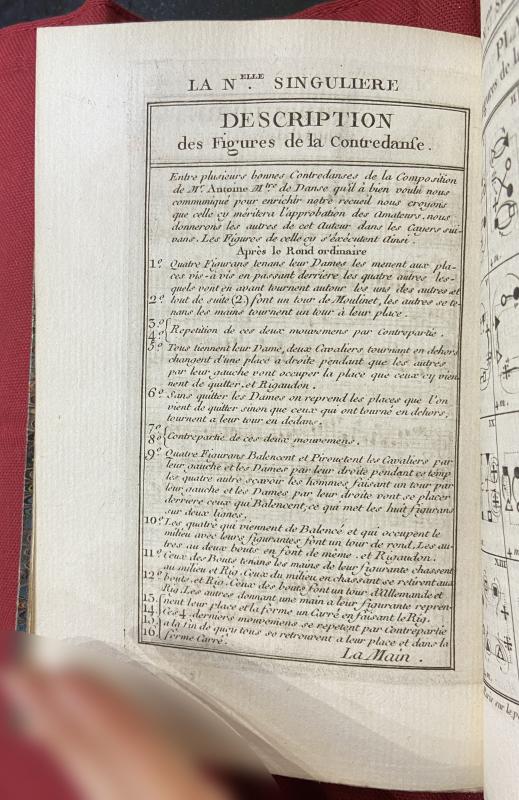 LA N.ELLE SINGULIERE
DESCRIPTION
des Figures de la Contredanse.
Entre plusieurs bonnes Contredanses de la Composition
de Mr. Antoine Mtre de Danse qu'il à bien voulu nous
communiqué pour enrichir notre recueil nous croyons
que celle cy méritera l'approbation des Amateurs. nous
donnerons les autres de cet Auteur dans les Cayers sui-
vans. Les Figures de celle cy s'éxécutent Ainsi.
Après le Rond ordinaire
1.o Quatre Figurans tenans leur Dames les menent aux pla-
ces vis-à-vis en passant derriere les quatre autres les-
quels vont en avant tournent autour les uns des autres et
2.o tout de suite (2.) font un tour de Moulinet, les autres se te-
nans les mains tournent un tour à leur place.
3.o
4.o Repetition de ces deux mouvemens par Contrepartie.
5.o Tous tiennent leur Dame, deux Cavaliers tournant en dehors
changent d'une place a droite pendant que les autres
par leur gauche vont occuper la place que ceux cy vien-
nent de quitter. et Rigaudon.
6.o Sans quitter les Dames on reprend les places que l'on
vient de quitter sinon que ceux qui ont tourné en dehors,
tournent a leur tour en dedans.
7.o
8.o Contrepartie de ces deux mouvemens.
9.o Quatre Figurans Balencent et Pirouetent les Cavaliers par
leur gauche et les Dames par leur droite pendant ce temp
les quatre autre sçavoir les hommes faisant un tour par
leur gauche et les Dames par leur droite vont se placer
derriere ceux qui Balencent, ce qui met les huit figurans
sur deux lignes.
10.o Les quatre qui viennent de Balencé et qui occupent le
milieu avec leurs figurantes font un tour de rond, Les au-
tres au deux bouts en font de même. et Rigaudon.
11.o Ceux des Bouts tenans les mains de leur figurante chassent
au milieu et Rig. Ceux du milieu en chassant se retirent aux
12.o bouts. et Rig. Ceux des bouts font un tour d'Allemande et
Rig. Les autres donnant une main a leur figurante repren-
13. nent leur place et la forme un Carré en faisant le Rig.
14. Ces 4. derniers mouvemens se repetent par Contrepartie
15. a la fin de quoy tous se retrouvent a leur place et dans la
16. forme Carré.
La Main.